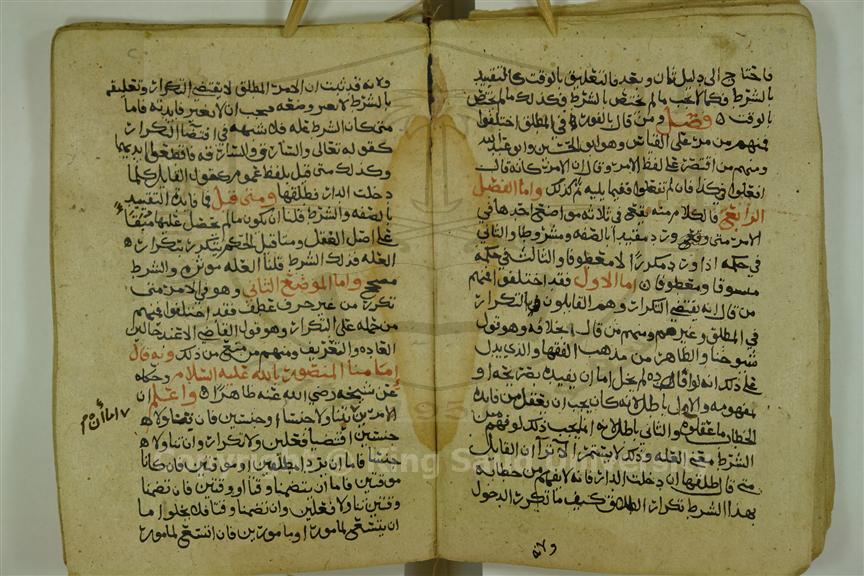 فاحتاج الى دليل ثان وبعد فالتعليق بالوقت كالتقييد
بالشرط فكما لا يجب ما لم يختص بالشرط وكذلك ما لم يختص
بالوقت ٥ فصل ومن قال بالفور في المطلق اختلفوا
فمنهم من مر على القياس وهو ابو الحسين وابو عبد الله
ومنهم من اقتصر على لفظ الامر وقال ان الامر كانه قالت
افعلوا وكذا فان لم تفعلوا ففيما يليه ثم كذلك واما الفصل
الرابع فالكلام منه يقع في ثلاثة مواضع احدها في
الامر متى وقع ورد مقيدا بالصفه ومشروطا والثاني
في حكمه اذا ورد مكررا لا معطوفا والثالث في حكمه
منسوقا ومعطوفا اما الاول فقد اختلفوا فيهم
من قال انه يقتضي التكرار وهم القايلون بالتكرار
في المطلق وغيرهم ومنهم من قال بخلافه وهو قول
شيوخنا والظاهر من مذهب الفقها والذي يدل
على ذلك انه لو افاده لم يخل اما ان يفيده بصريحه او
بمفهومه والاول باطل لانه كان يجب ان يعقل من فايدة
الخطاب ما عقلوه والثاني باطل لانه انما يجب ذلك لو فهم من
الشرط معنى العله وذلك لا يستمر الا ترا ان القايل
متى قال طلقها ان دخلت الدار فانه لا يفهم من خطابه
بهذا الشرط تكرار الطلاق كيف ما تكرر الدخول
ولانه
ولانه قد ثبت ان الامر المطلق لا يقتضي التكرار وتعليقه
بالشرط لا يغير وضعه فيجب ان لا يغير فايدته فاما
متى كان الشرط عله فلا شبهه في اقتضا التكرار
كقوله تعالى والسارق والسارقه فاقطعوا ايديهما
وكذلك متى قيل بلفظ عموم كقول القايل كلما
دخلت الدار فطلقها ومتى قيل فما فايدة التقييد
بالصفه والشرط قلنا ان يكون ما لم يحصل عليها مبقا
على اصل العقل ومتا قيل الحكم يتكرر بتكرار
العله فكذلك الشرط قلنا العله موثره والشرط
مصحح واما الموضع الثاني وهو في الامر متى
تكرر من غير حرف عطف فقد اختلفوا فمنهم
من حمله على التكرار وهو قول القاضي الا عند
العاده والتعريف ومنهم من منع من ذلك وبه قال
امامنا المنصور بالله عليه السلام وحكاه
عن شيخه رضي الله عنه طاهرا واعلم ان
الامرين اما ان يتناولا جنسا او جنسين فان تناولا
جنسين اقتضا فعلين ولا تكرار وان تناولا
جنسا فاما ان يردا مطلقين او موقتين فان كانا
موقتين فاما ان يتضمنا وقتا او وقتين فان تضمنا
وقتين تناولا فعلين وان تضمنا وقتا فلا يخلوا اما
ان يتسع للمامور او مامورين فان اتسع لمامور